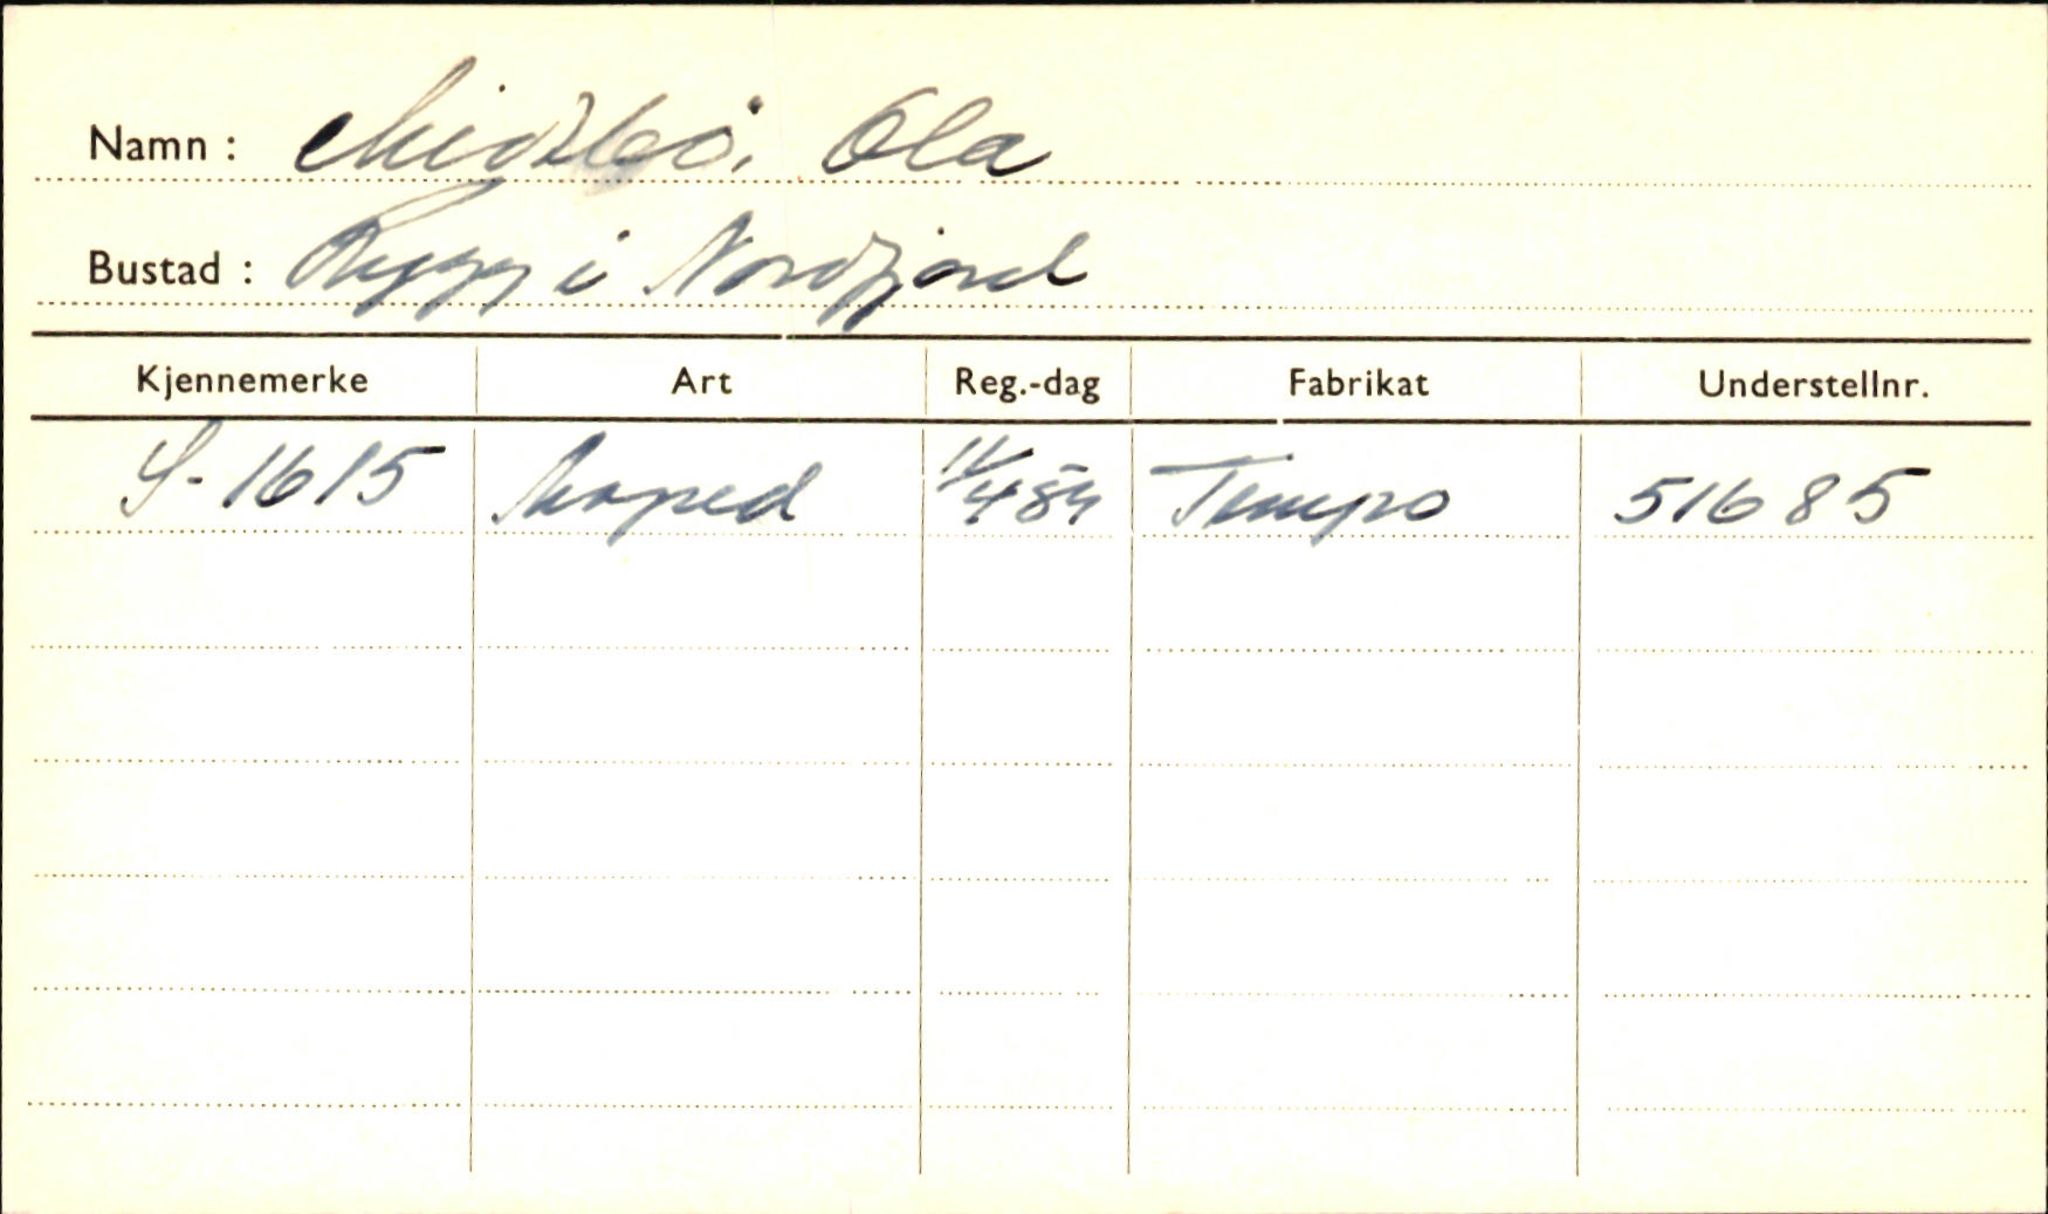 Namn : Midtbö, Ola
Bustad : Rygg i Nordfjord
Kjennemerke Art Reg.-dag Fabrikat Understellnr.
S-1615 Moped 11/4 59 Tempo 51685